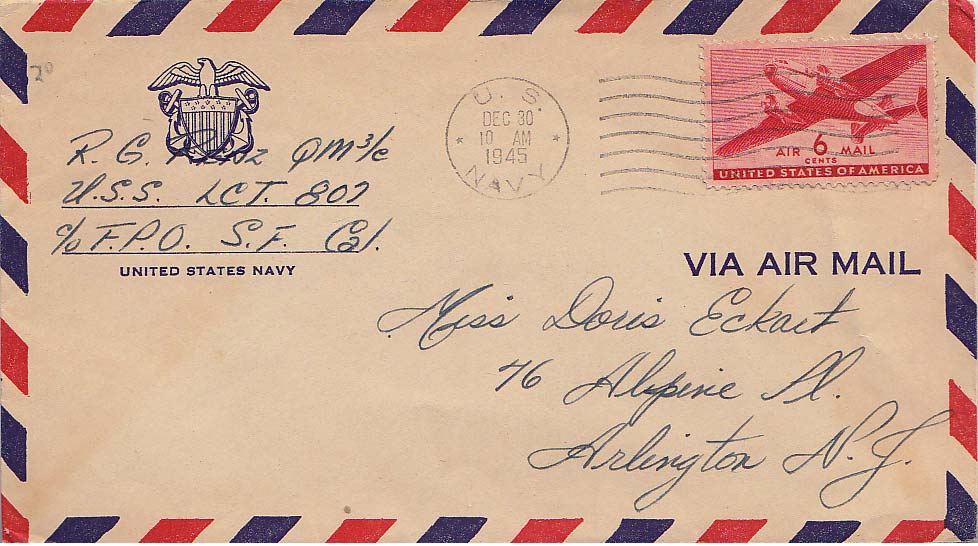 20
R. G. QM 3/c
U.S.S. LCT. 807
c/o F.P.O. S.F. Cal.
UNITED STATES NAVY
U. S.
DEC 30
10 AM
1945
NAVY
AIR 6 MAIL
CENTS
UNITED STATES OF AMERICA
VIA AIR MAIL
Miss Doris Eckart
76 Alpine Pl.
Arlington N. J.